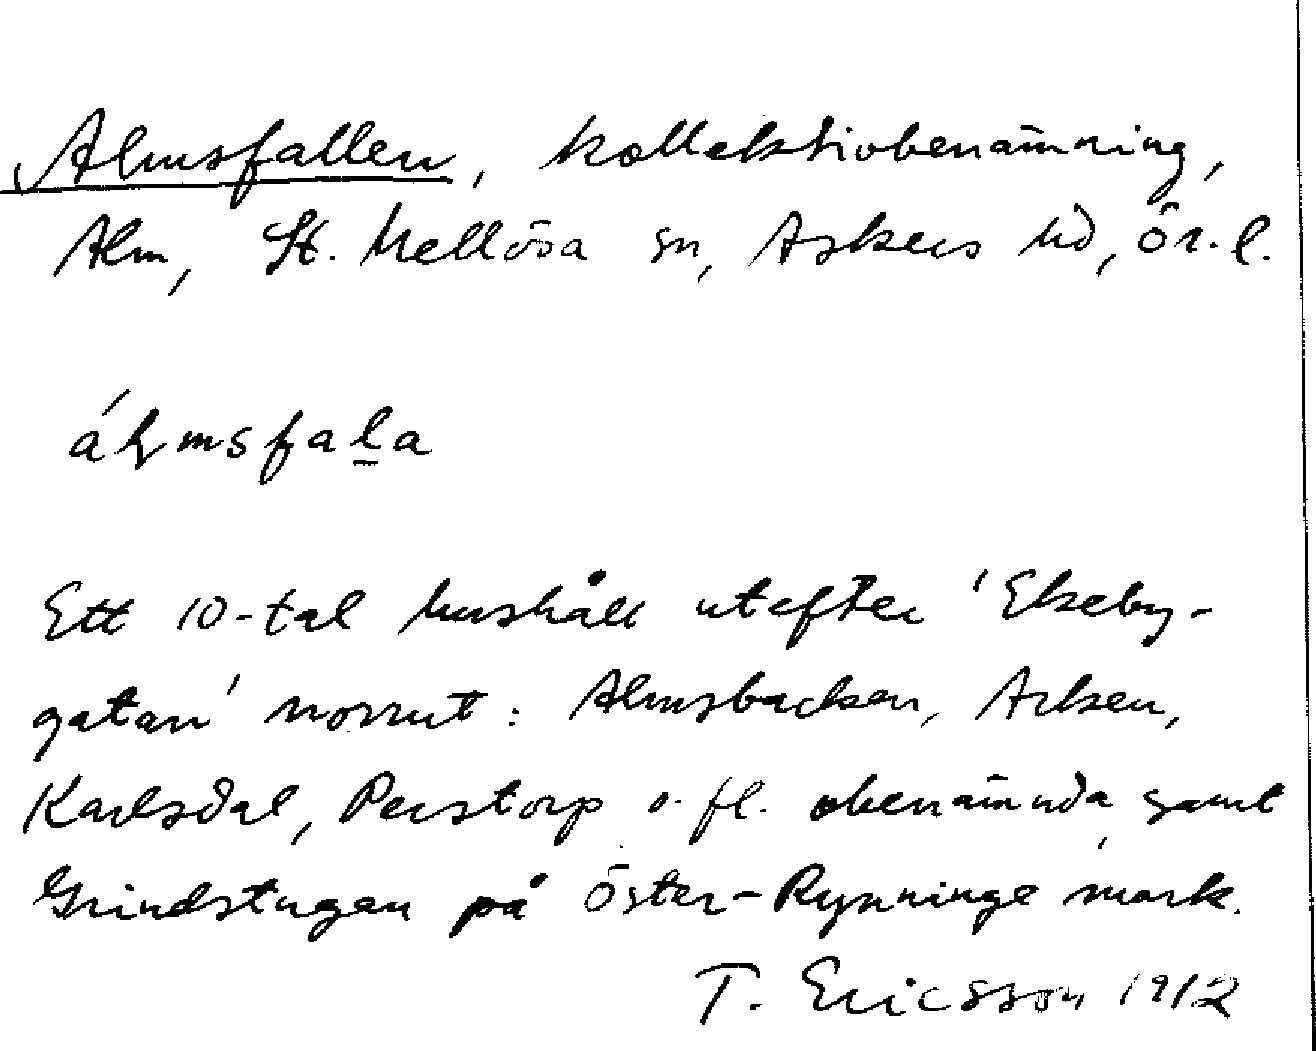 Almsfallen, kollektivbenämning,
Alm, St. Mellösa sn, Askers hd, Ör. l.
Ett 10-tal hushåll utefter 'Ekeby-
gatan' norrut: Almsbacken, Arken,
Karlsdal, Perstorp o. fl. obenämnda, samt
Grindstugan på Öster-Rynninge mark.
T. Ericsson 1912